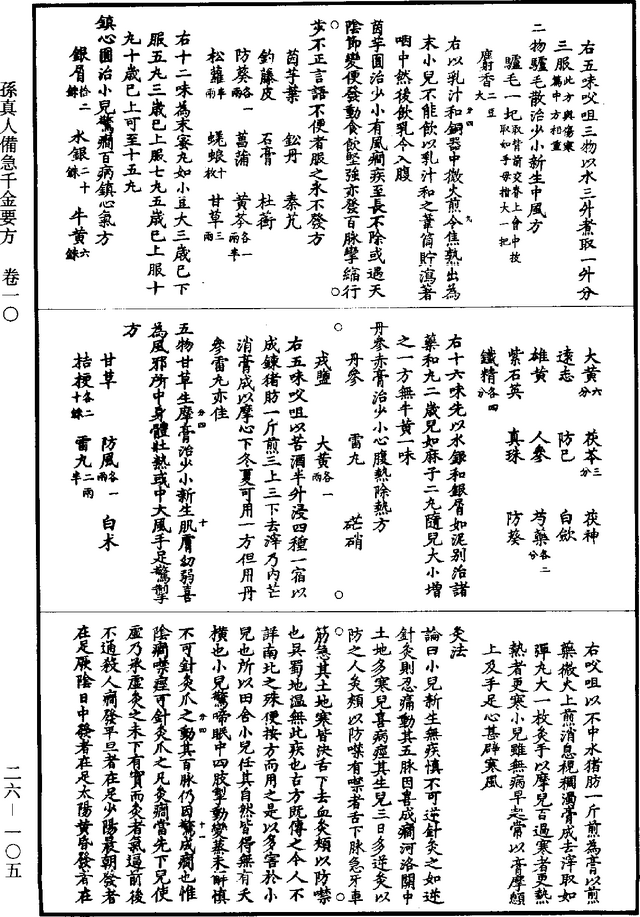 孫真人備急千金要方　卷一〇
二六—一〇五
右五味㕮咀三物以水三升煮取一升分
三服此方與傷寒篇中方相重
二物驢毛散治少小新生中風方
驢毛一把取背前交脊上會中拔取如手母指大一把
麝香二豆大
右以乳汁和銅器中微火煎令焦熟出為
末小兒不能飲以乳汁和之葦筒貯瀉著
咽中然後飲乳令入腹
茵芋圓治少小有風癇疾至長不除或遇天
陰節變便發動食飲堅強亦發百脉攣縮行
步不正言語不便者服之永不發方
茵芋葉　鈆丹　秦艽
釣藤皮　石膏　杜衡
防葵各一兩　菖蒲　黃芩各一兩半
松蘿半兩　蜣蜋十枚　甘草三兩
右十二味為末蜜丸如小豆大三歲已下
服五丸三歲已上服七丸五歲已上服十
丸十歲已上可至十五丸
鎮心圓治小兒驚癇百病鎮心氣方
銀屑十二銖　水銀二十銖　牛黃六銖
大黃六分　茯苓三分　茯神
遠志　防己　白斂
雄黃　人參　芍藥各二分
紫石英　真珠　防葵
鐵精各四分
右十六味先以水銀和銀屑如泥別治諸
藥和丸二歲兒如麻子二丸隨兒大小增
之一方無牛黃一味
丹參赤膏治少小心腹熱除熱方
丹參　雷丸　芒硝
戎鹽　大黃各二兩
右五味㕮咀以苦酒半升浸四種一宿以
成鍊猪肪一斤煎三上三下去滓乃內芒
消膏成以摩心下冬夏可用一方但用丹
參雷丸亦佳
五物甘草生摩膏治少小新生肌膚幼弱喜
為風邪所中身體壯熱或中大風手足驚掣
方
甘草　防風各一兩　白术
桔梗各二十銖　雷丸二兩半
右㕮咀以不中水猪肪一斤煎為膏以煎
藥微火上煎消息視稠濁膏成去滓取如
彈丸大一枚炙手以摩兒百過寒者更熱
熱者更寒小兒雖無病早起常以膏摩顖
上及手足心甚辟寒風
灸法
論曰小兒新生無疾慎不可逆針灸之如逆
針灸則忍痛動其五脉因喜成癇河洛關中
土地多寒兒喜病痙其生兒三日多逆灸以
防之又灸頰以防噤有噤者舌下脉急牙車
筋急其土地寒皆決舌下去血灸頰以防噤
也吳蜀地溫無此疾也古方既傳之今人不
詳南北之殊便按方而用之是以多害於小
兒也所以田舍小兒任其自然皆得無有夭
橫也小兒驚啼眠中四肢掣動變蒸未解慎
不可針灸爪之動其百脉仍因驚成癇也惟
陰癇噤痙可針灸爪之凡灸癇當先下兒使
虛乃承虛灸之未下有實而灸者氣逼前後
不通殺人癇發平旦者在足少陽晨朝發者
在足厥陰日中發者在足太陽黃昏發者在